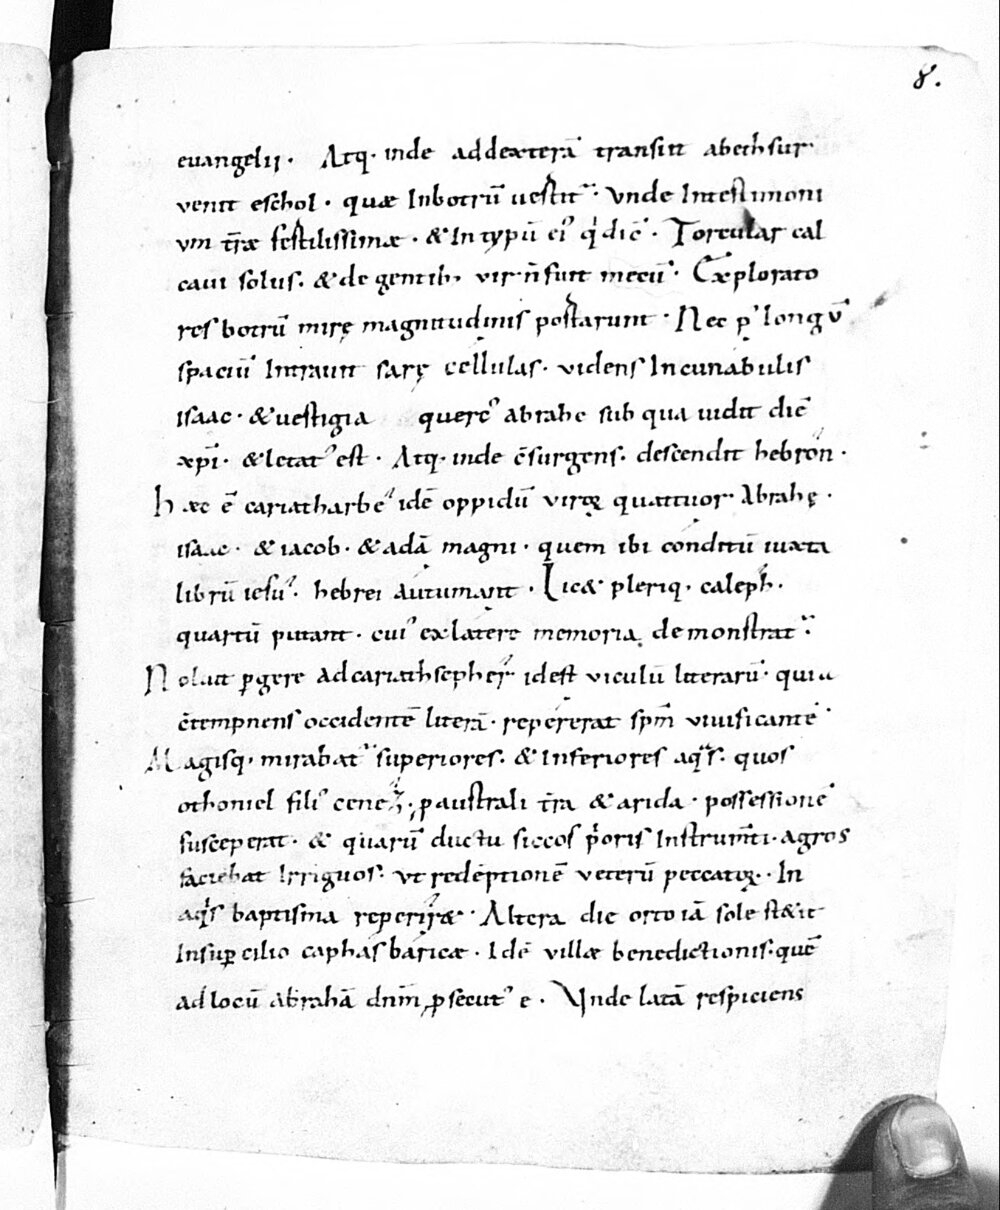 8.
euangelii · Atq· inde addexterā transiit abethsur·
venit eschol · quæ Inbotrū uestit᷑ · vnde Intestimoni
vm tr̄æ fertilissimæ · & In typū ei᷒ q́ dic̄ · Torcular cal
caui solus · & de gentib; vir n̄ fuit mecū · Explorato
res botrū mirę magnitudinis portarunt · Nec p᷒ longū
spaciū Intrauit sarę cellulas · videns Incunabulis
isaac · & uestigia querc᷒ abrahę sub qua uidit diē
xp̄i · & letat᷒ est · Atq· inde c̄surgens · descendit hebron ·
hæc ē cariatharbe᷒ idē oppidū virꝝ quattuor · Abrahę ·
isaac · & iacob · & adā magni · quem ibi conditū iuxta
librū iesu᷒ hebrei autumant · Lic& pleriq· caleph ·
quartū putant · cui᷒ ex latere memoria demonstrat᷑ ·
Noluit ꝑgere Adcariathsepher idest viculū literarū · quia
c̄tempnens occidentē literā · repererat sp̄m viuificantē ·
Magisq· mirabat᷑ superiores · & Inferiores aq̇s · quos
othoniel fili᷒ cenez · p australi tr̄a & arida · possessionē
susceperat · & quarū ductu siccos ṗoris Instrum̄ti · agros
faciebat Irriguos · vt redēptionē veterū peccatoꝝ · In
aq̇s baptisma reperir& · Altera die orto iā sole st&it
Insuꝑcilio caphasbaricæ · Idē villæ benedictionis · quē
ad locū abrahā dn̄m ꝓsecut᷒ e · Vnde latā respiciens